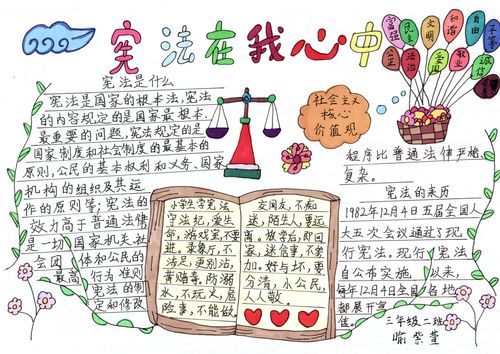 宪法在我心中
富强
民主
文明
和谐
自由
平等
公正
法治
爱国
敬业
诚信
宪法是什么
宪法是国家的根本法,宪法
的内容规定的是国家最根本、
最重要的问题,宪法规定的是
国家制度和社会制度的最基本的
原则,公民的基本权利和义务、国家
机构的组织及其运
作的原则等;宪法的
效力高于普通法律
是一切国家机关社
会团体和公民的
最高行为准则
宪法的制
定和修改
程序比普通法律严格
复杂。
社会主义
核心
价值观
小学生学宪法
守法纪,爱生
命,游戏室,不要
进,录餐厅,不
涉足,更别沾,
黄赌毒,防溺
水,不玩火,危
险事,不能做。
交网友,不痴
迷,陌生人,要远
离。放学后,即回
家,迷信事,不参
加。好与坏,要
分清,小公民,
人人敬。
宪法的来历
1982年12月4日五届全国人
大五次会议通过了现
行宪法。现行宪法
自公布实施以来,
每年12月4日全国各地
都展开宣
传。
三年级二班
喻紫萱